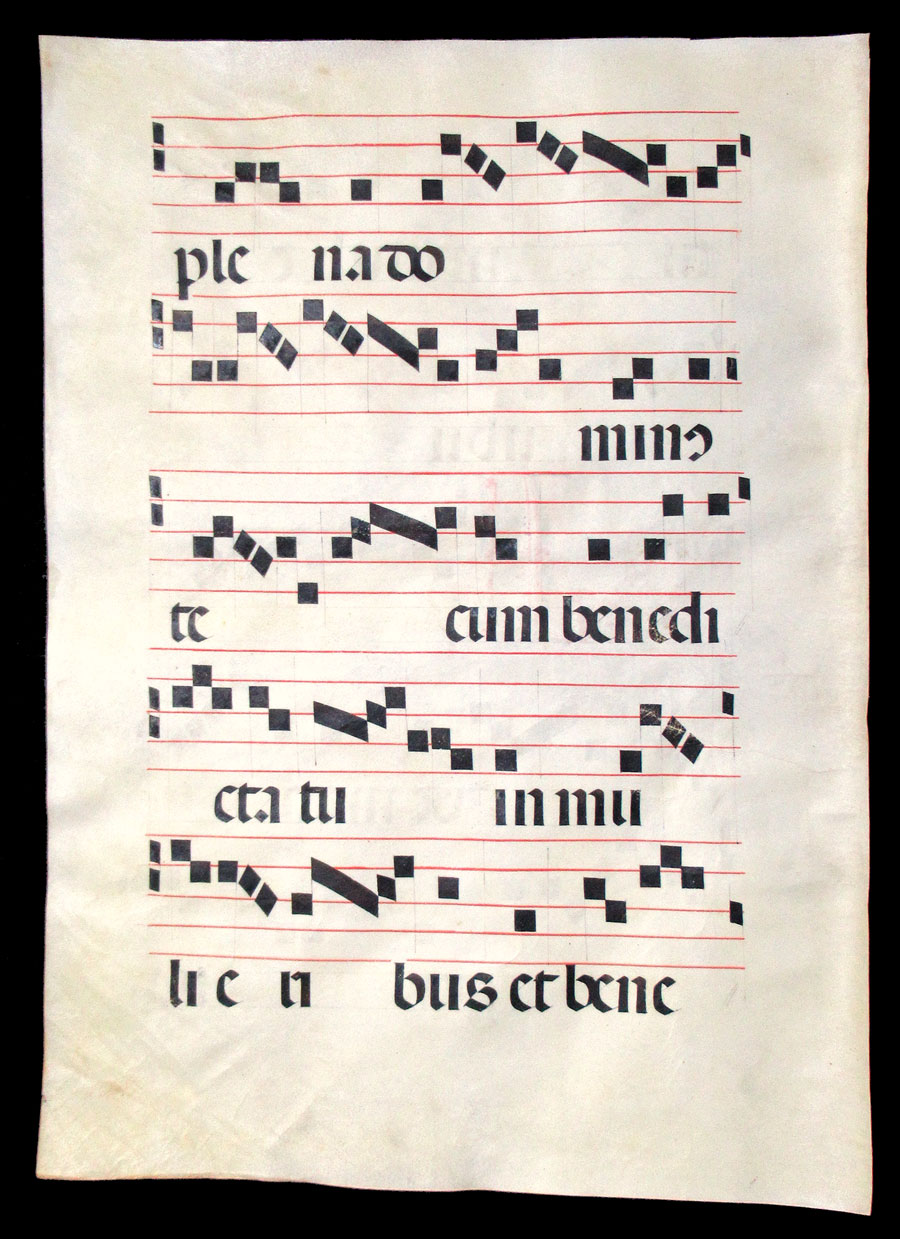 ple na do
mino
te cum benedi
cta tu in mu
li e ri bus et bene